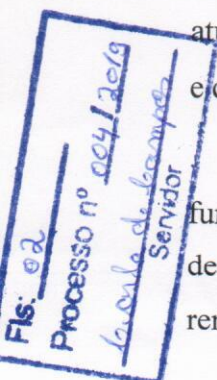 Fls: 02
Processo nº 004/2019
de Campos
Servidor
atu
e c
fun
de
ren